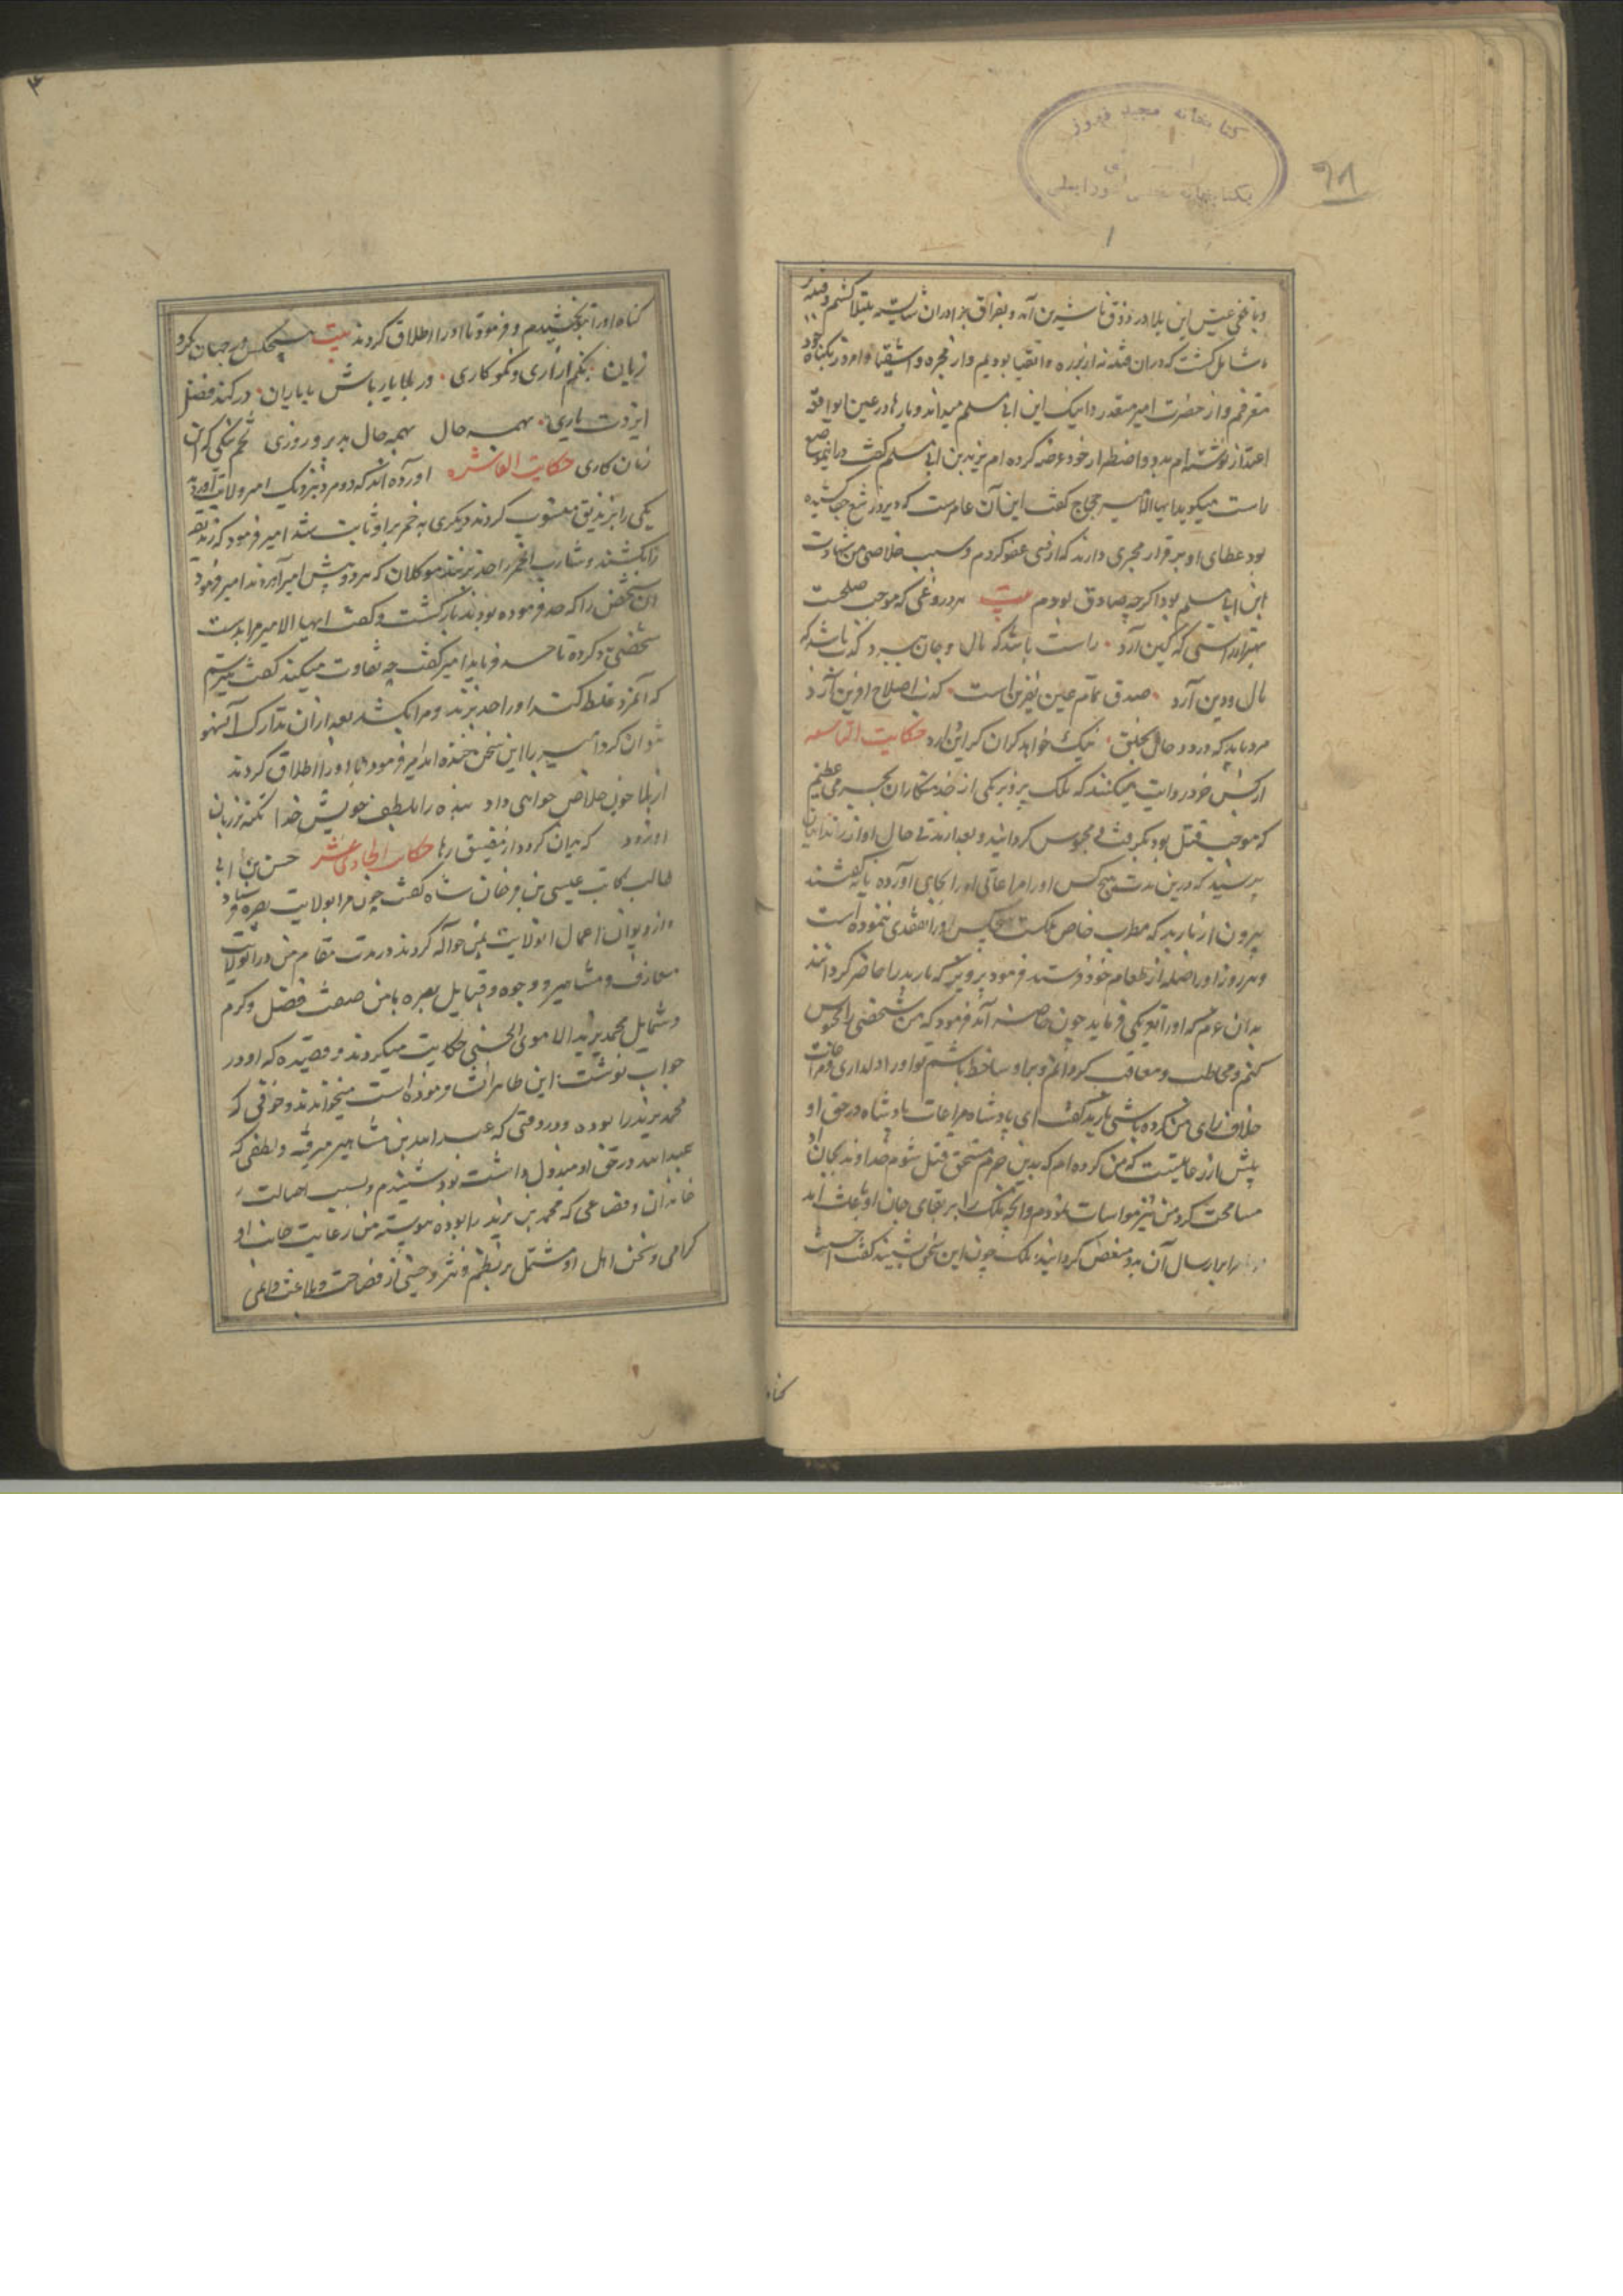 کتابخانه مجید فیروز
۹۸
۱
و با تلخی عیش این بلا در ذوق ما شیرین آمد و بفراق برادران شایسته مبتلا گشتیم و فتنهٔ
شامل گشت که در آن فتنه نه از برره و اتقیا بودیم و از فجره و اشقیا و امروز بگناه خود
معترفم و از حضرت امیر معتذر و اینک ابن ابی مسلم میداند و بارها در عین این واقعه
اعتذار نوشته‌ام بدو و اضطرار خود عرضه کرده‌ام یزید بن ابی مسلم گفت درین موضع
راست میگوید ایها الامیر حجاج گفت این آن عامرست که دیروز تیغ بر ما کشیده
بود عطای او برقرار مجری دارند که از وی عفو کردم و سبب خلاصی من شهادت
ابن ابی مسلم بود اگرچه صادق بودم بیت هر دروغی که موجب صلحست
بهتر از راستی که کین آرد راست باشد که مال و جان ببرد کذب باشد که
مال و دین آرد صدق نمام عین نفرین است کذب اصلاح آفرین آرد
مرد باید که در همه حال بخلق نیک خواهد گر آن گر این آرد حکایت التاسعه
از کتب خود روایت میکنند که ملک پرویز یکی از خدمتکاران بجریمه عظیم
که موجب قتل بود بگرفت و محبوس گردانید و بعد از مدتی حال او از زندانبان
پرسید که درین مدت هیچ کس او را مراعاتی و او را بجای آورده یا نه گفتند
بیرون از باربد که مطرب خاص ملکست هیچکس او را تفقدی ننموده است
و هر روز او را صله از طعام خود فرستد فرمود پرویز که باربد را حاضر کردانند
بدان عزم که او را تعریکی فرماید چون حاضر آمد فرمود که من شخصی را محبوس
کنم و مخاطب و معاقب گردانم و بر او ساخط باشم تو او را دلداری و مراعات
خلاف رای من کرده باشی باربد گفت ای پادشاه مراعات پادشاه در حق او
بیش از رعایتیست که من کرده‌ام که بدین جرم مستحق قتل شوم خداوند بجان او
مسامحت کرد و من نیز مواسات نمودم و آنچه ملک را بر بقای جان او باعث آمد
مرا بر ارسال آن بدو مفوض گردانید ملک چون این سخن شنید گفت احسنت
گناه
گناه او را بتو بخشیدم و فرمود تا او را اطلاق کردند بیت هیچکس در جهان نکرد
زیان بکم آزاری و نکوکاری در بلا یار باش با یاران در کند فضل
ایزدت یاری بهمه حال بهمه حال بدبر و روزی تخم نیکی که این
زمان کاری حکایت العاشره آورده‌اند که دو مرد نزدیک امیر ولایتی آوردند
یکی را بزندیق منسوب کردند و دیگری به خمر بر او ثابت شد امیر فرمود که زندیق
را بکشند و شارب الخمر را حد بزنند موکلان که هر دو پیش امیر آوردند امیر فرمود
آن شخص را که حد فرموده بودند بازگشت و گفت ایها الامیر مرا بدست
شخصی دیگر ده تا حد فرماید امیر گفت چه تفاوت میکند گفت میترسم
که آنمرد غلط کند او را حد بزند و مرا بکشد بعد از آن تدارک آن سهو
نتوان کرد امیر را این سخن خنده آمد امیر فرمود تا او را اطلاق کردند
از بلا خوب خلاصی خواهی داد بنده را بلطف خویش خدا نکته بر زبان
او زود که بدان گردد از مضیق رها حکایت الحادی عشر حسن بن ابی
طالب کاتب عیسی بن فرخان شاه گفت چون مرا بولایت بصره فرستاد
و از دیوان اعمال آن ولایت بمن حواله کردند در مدت مقام من در آن ولایت
معارف و مشاهیر و وجوه و قبایل بصره با من صفت فضل و کرم
و شمایل محمد یزید الاموی الحسنی حکایت میکردند و قصیده که او در
جواب نوشت ابن طاهر انشا فرموده است میخواندند و خوفی که
محمد یزید را بوده و در وقتی که عبدالله بن طاهر بمصر میرفته و لطفی که
عبدالله در حق او مبذول داشت بود شنیدم و بسبب اصالت
خاندان و فضاعی که محمد بن یزید را بوده پیوسته من رعایت جانب او
گرامی و سخن اهل او مشتمل بر نظم و نثر و حسنی از فصاحت و بلاغت و املی